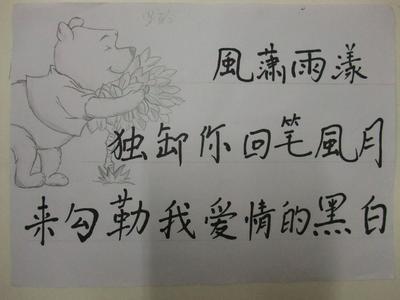 風潇雨漾
独卸你回笔風月
来勾勒我爱情的黑白